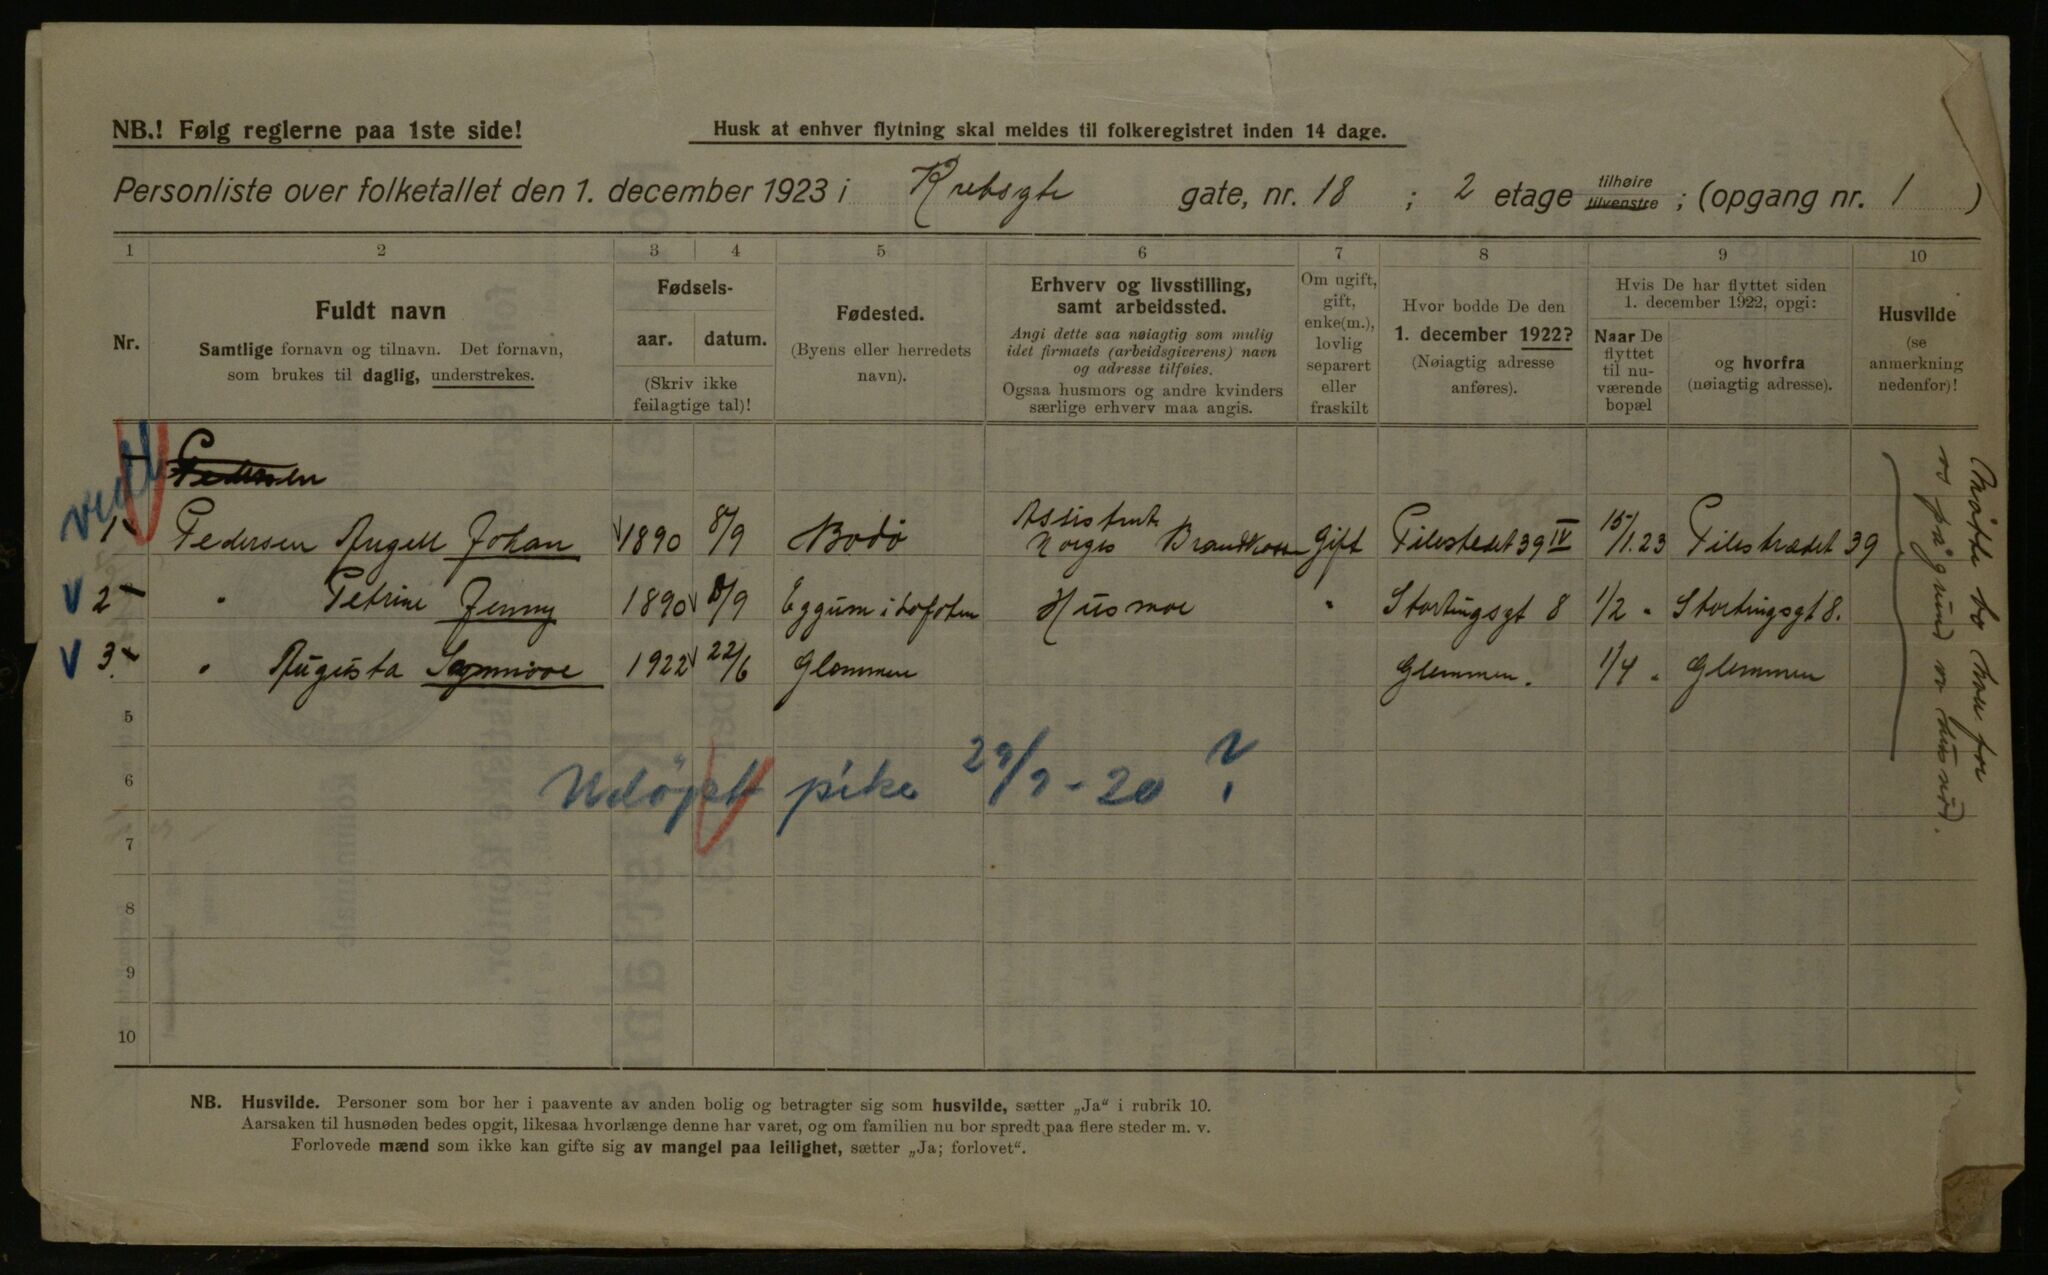 NB.! Følg reglerne paa 1ste side!
Husk at enhver flytning skal meldes til folkeregistret inden 14 dage.
Personliste over folketallet den 1. december 1923 i Krebsgte gate, nr. 18 ; 2 etage tilhøire tilvenstre ; (opgang nr. 1 )
1 2 3 4 5 6 7 8 9 10
Nr.
Fuldt navn
Samtlige fornavn og tilnavn. Det fornavn,
som brukes til daglig, understrekes.
Fødsels-
aar. datum.
(Skriv ikke
feilagtige tal)!
Fødested.
(Byens eller herredets
navn).
Erhverv og livsstilling,
samt arbeidssted.
Angi dette saa nøiagtig som mulig
idet firmaets (arbeidsgiverens) navn
og adresse tilføies.
Ogsaa husmors og andre kvinders
særlige erhverv maa angis.
Om ugift,
gift,
enke(m.),
lovlig
separert
eller
fraskilt
Hvor bodde De den
1. december 1922?
(Nøiagtig adresse
anføres).
Hvis De har flyttet siden
1. december 1922, opgi:
Naar De
flyttet
til nu-
værende
bopæl
og hvorfra
(nøiagtig adresse).
Husvilde
(se
anmerkning
nedenfor)!
Pedersen
1 Pedersen Angell Johan 1890 8/9 Bodö Assistent Norges Brandkasse Gift Pilestedet 39 IV 15/1.23 Pilestrædet 39
2 " Petrine Jenny 1890 8/9 Eggum i Lofoten Husmor " Stortingsgt 8 1/2 " Stortingsgt 8.
3 " Augusta Synnøve 1922 22/6 Glemmen Glemmen. 1/4 " Glemmen
Måtte bo hos for
på grund av husnød.
5
6
Udöpt pike 29/9-20 ?
7
8
9
10
NB. Husvilde. Personer som bor her i paavente av anden bolig og betragter sig som husvilde, sætter „Ja“ i rubrik 10.
Aarsaken til husnøden bedes opgit, likesaa hvorlænge denne har varet, og om familien nu bor spredt paa flere steder m. v.
Forlovede mænd som ikke kan gifte sig av mangel paa leilighet, sætter „Ja; forlovet“.